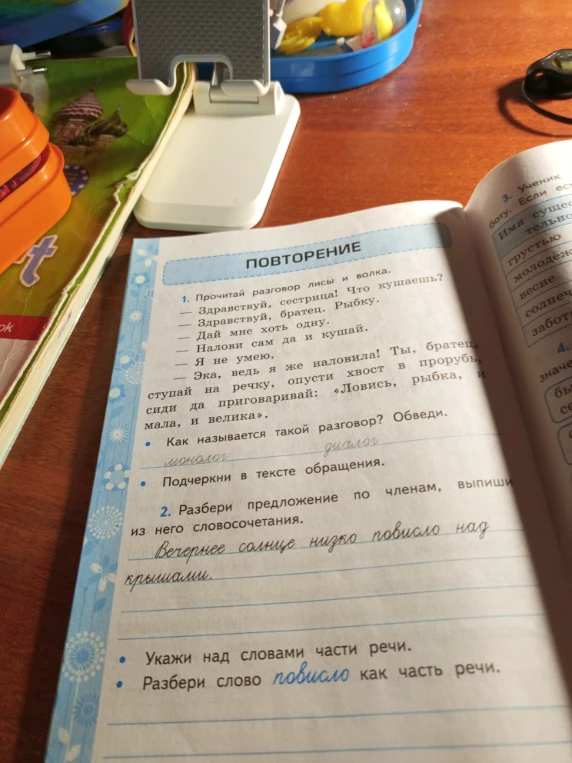 ПОВТОРЕНИЕ
1. Прочитай разговор лисы и волка.
— Здравствуй, сестрица! Что кушаешь?
— Здравствуй, братец. Рыбку.
— Дай мне хоть одну.
— Налови сам да и кушай.
— Я не умею.
— Эка, ведь я же наловила! Ты, братец,
ступай на речку, опусти хвост в прорубь,
сиди да приговаривай: «Ловись, рыбка, и
мала, и велика».
• Как называется такой разговор? Обведи.
монолог диалог
• Подчеркни в тексте обращения.
2. Разбери предложение по членам, выпиши
из него словосочетания.
Вечернее солнце низко повисло над
крышами.
• Укажи над словами части речи.
• Разбери слово повисло как часть речи.
3. Ученик
Если
Имя
грустью
весне
4.